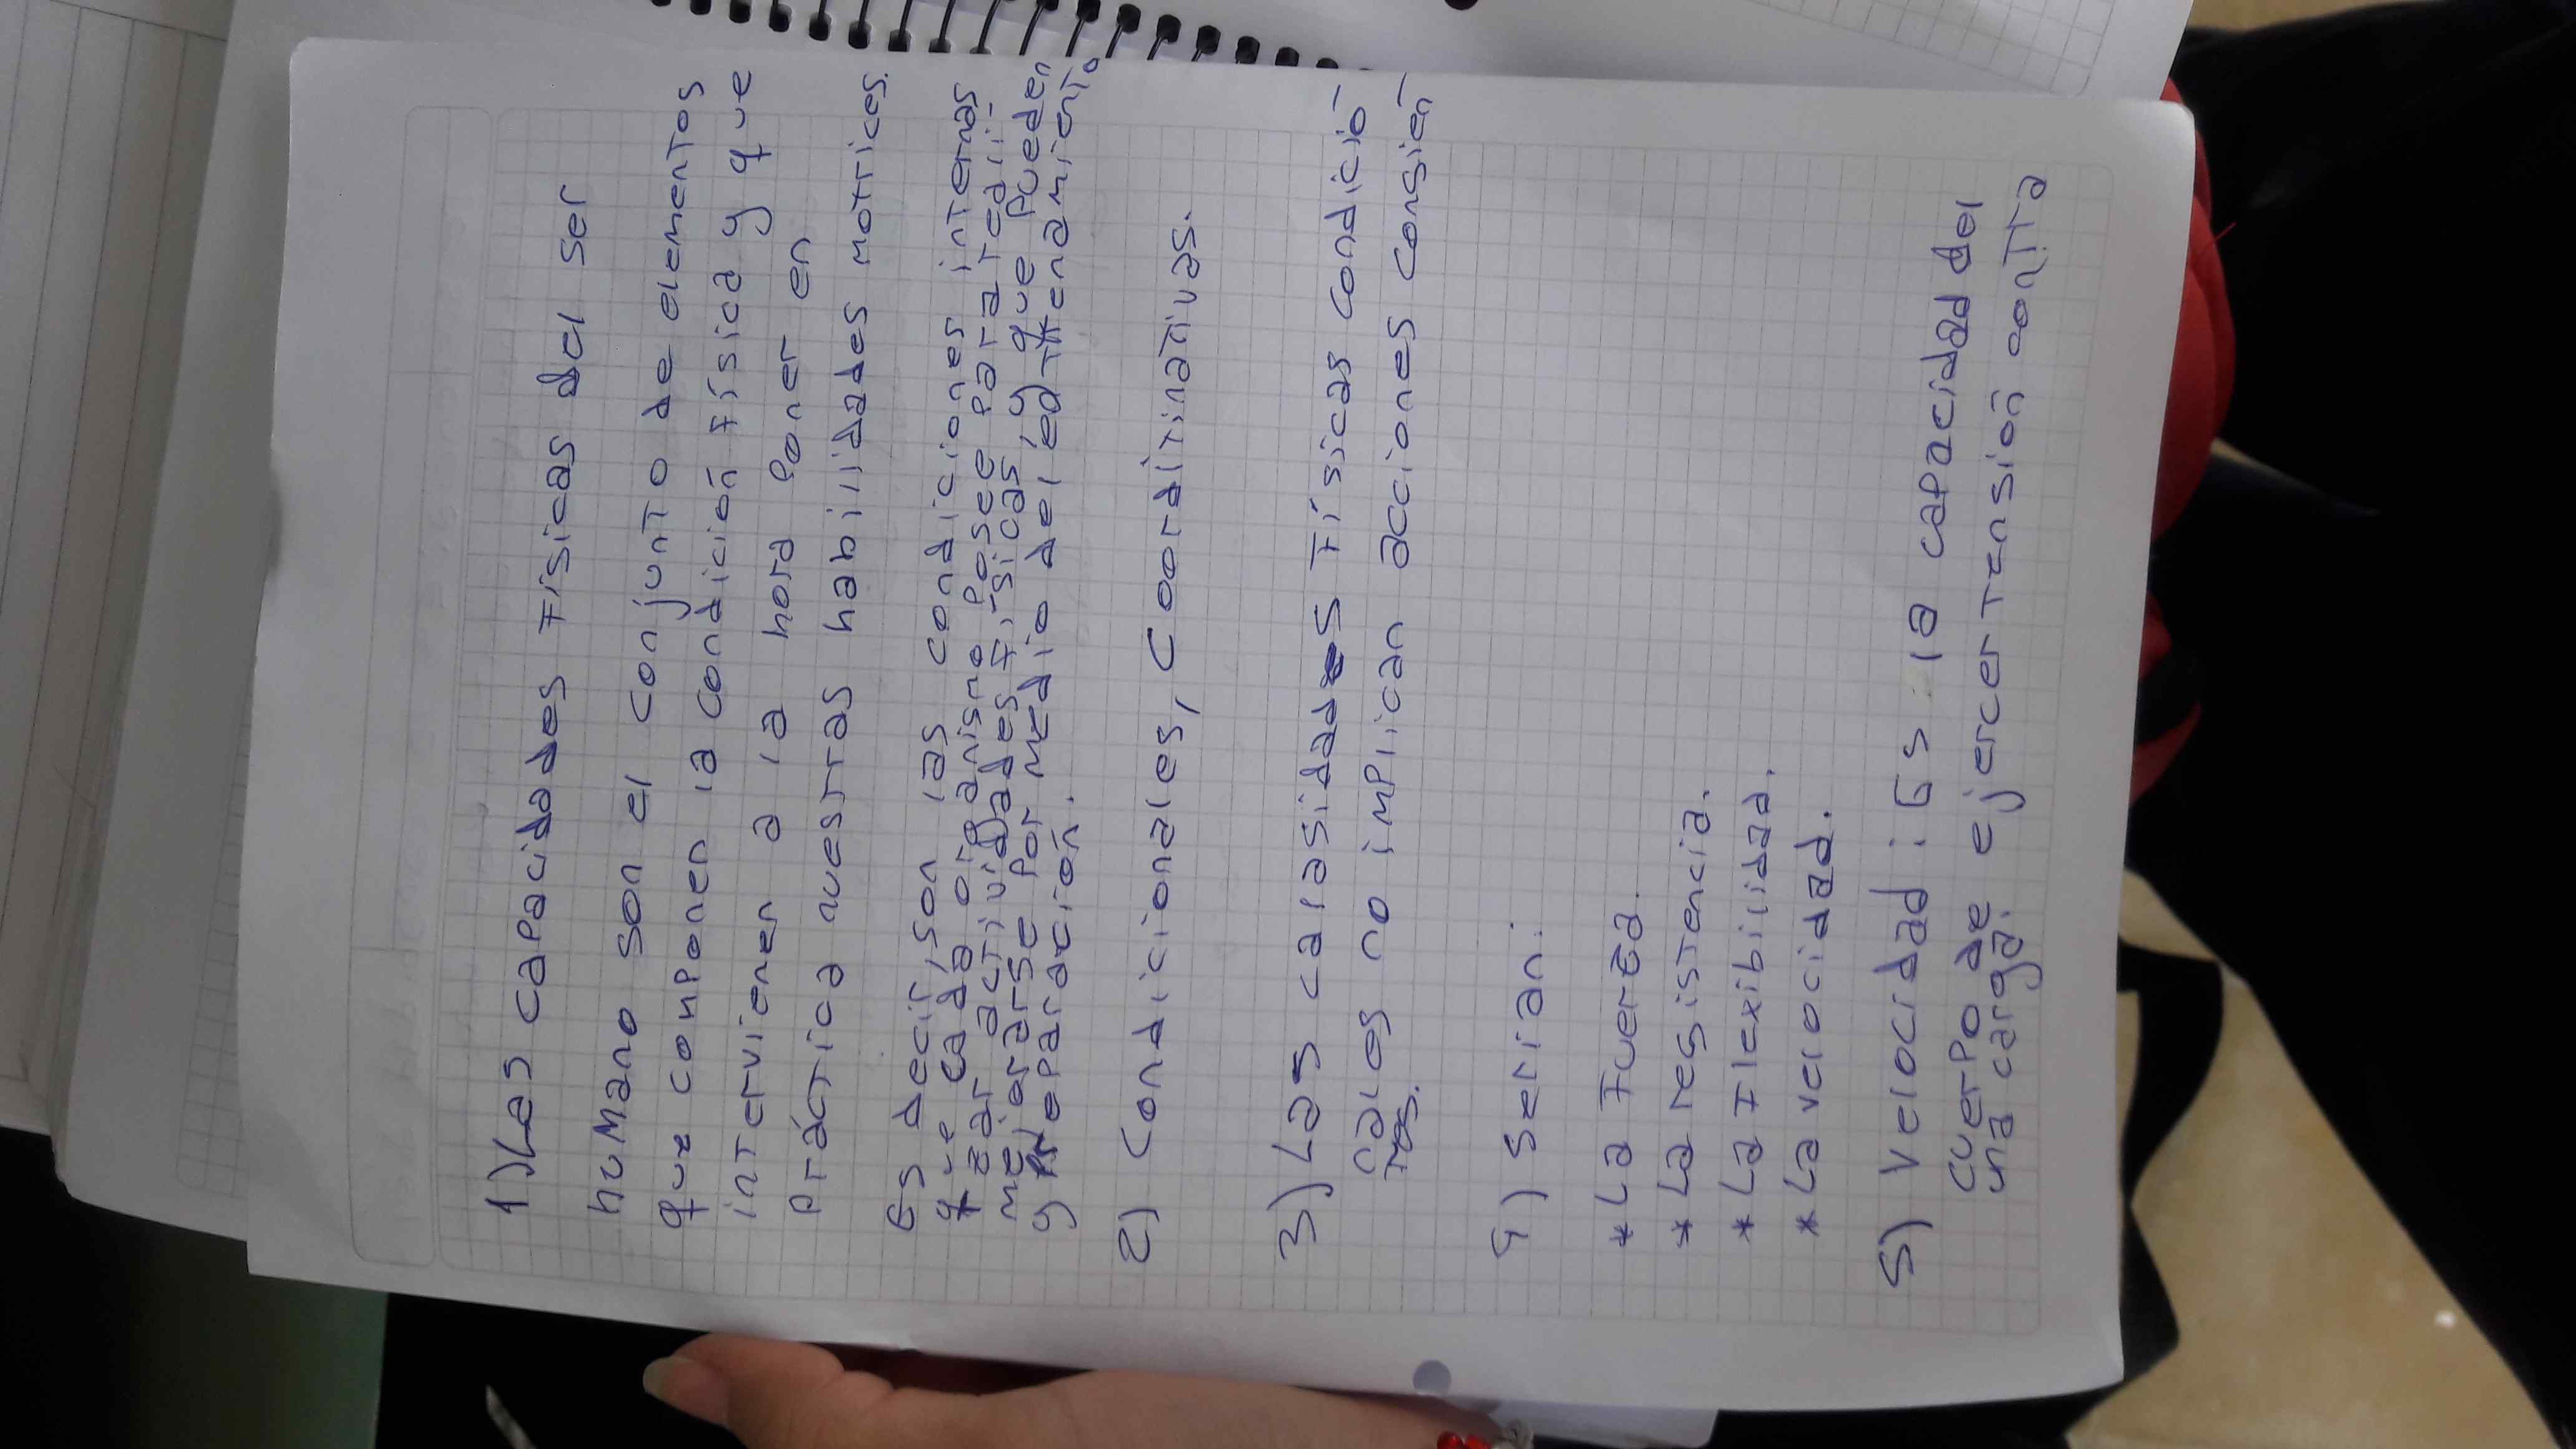 1) Las capacidades físicas del ser
humano son el conjunto de elementos
que componen la condición física y que
intervienen a la hora poner en
práctica nuestras habilidades motrices.
Es decir, son las condiciones internas
que cada organismo posee para realii-
zar actividades físicas y que pueden
mejorarse por medio del entrenamiento
y preparación.
2) Condicionales, Coorditinativas.
3) Las calasidades físicas condicio-
nales no implican acciones consien-
tes.
4) Serian:
* La Fuerza.
* La resistencia.
* La Flexibilidad.
* La velocidad.
5) Velocidad: Es la capacidad del
cuerpo de ejercer tensión contra
una carga.